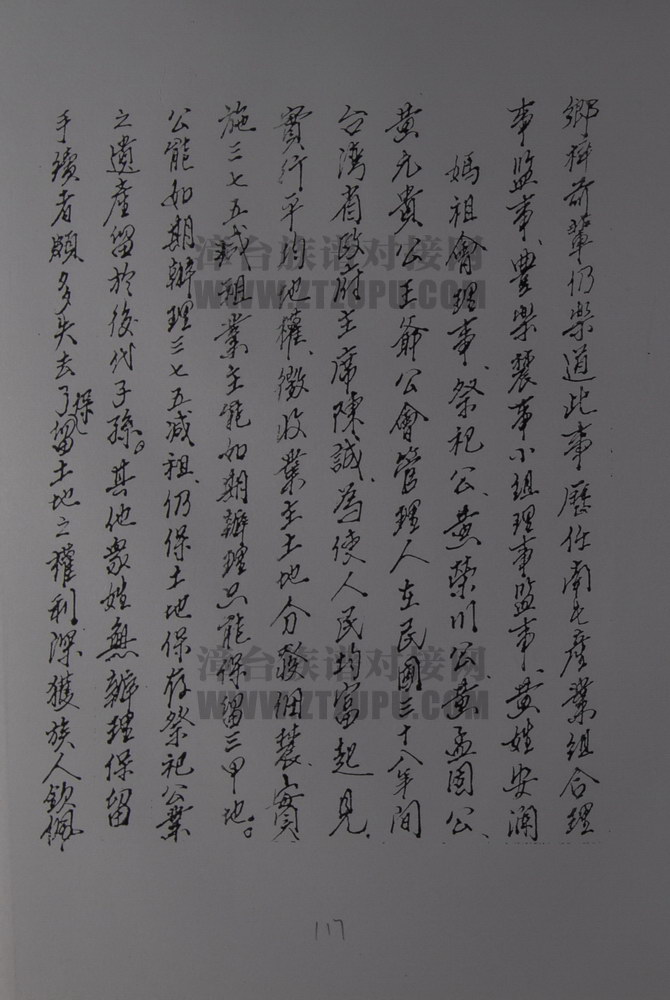 鄉梓前輩仍樂道此事歷任南屯產業組合理
事監事、豐榮農事小組理事監事、黃姓安瀾
媽祖會理事、祭祀公、黃榮川公、黃孟固公、
黃元貴公王爺公會管理人在民國三十八年間
台灣省政府主席陳誠、為使人民均富起見、
實行平均地權、徵收業主土地分發佃農、實
施三七五減租業主能如期辦理只能保留三甲地。
公能如期辦理三七五減租、仍保土地保存祭祀公業
之遺產留於後代子孫。其他眾姓無辦理保留
手續者頗多失去了保留土地之權利深獲族人欽佩、
漳台族谱对接网
WWW.ZTZUPU.COM
漳台族谱对接网
WWW.ZTZUPU.COM
117